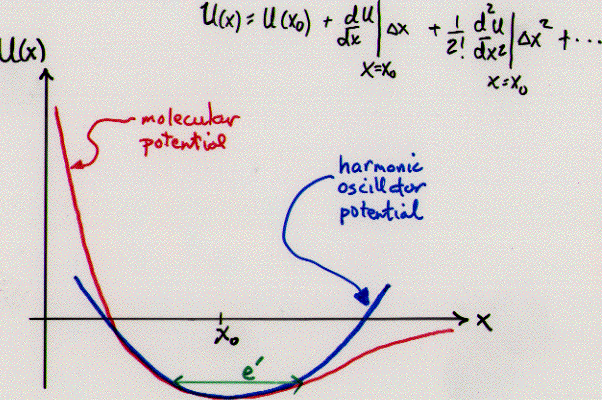 U(x) = U(x₀) + dU/dx|x=x₀ Δx + 1/2! d²U/dx²|x=x₀ Δx² + ...
U(x)
molecular
potential
harmonic
oscillator
potential
x
x₀
e′